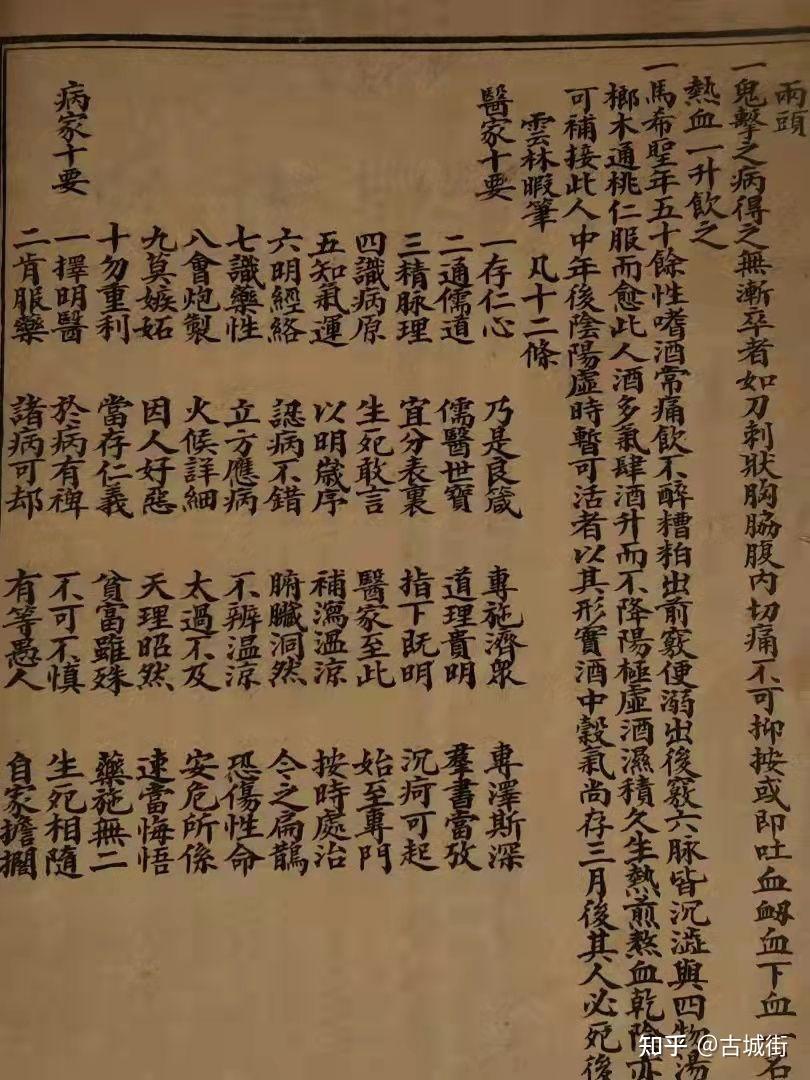 兩頭
一鬼擊之病得之無漸卒者如刀刺狀胸脇腹內切痛不可抑按或即吐血衂血下血一名
熱血一升飲之
一馬希聖年五十餘性嗜酒常痛飲不醉糟粕出前竅便溺出後竅六脉皆沉澁與四物湯
榔木通桃仁服而愈此人酒多氣肆酒升而不降陽極虛酒濕積久生熱煎熬血乾陰亦
可補接此人中年後陰陽虛時暫可活者以其形實酒中穀氣尚存三月後其人必死後
雲林暇筆　凡十二條
醫家十要
一存仁心　乃是良箴　專施濟衆　專澤斯深
二通儒道　儒醫世寶　道理貴明　羣書當攷
三精脉理　宜分表裏　指下既明　沉疴可起
四識病原　生死敢言　醫家至此　始至專門
五知氣運　以明歲序　補瀉溫涼　按時處治
六明經絡　認病不錯　腑臟洞然　今之扁鵲
七識藥性　立方應病　不辨温涼　恐傷性命
八會炮製　火候詳細　太過不及　安危所係
九莫嫉妬　因人好惡　天理昭然　速當悔悟
十勿重利　當存仁義　貧富雖殊　藥施無二
病家十要
一擇明醫　於病有裨　不可不慎　生死相隨
二肯服藥　諸病可却　有等愚人　自家擔擱
知乎 @古城街